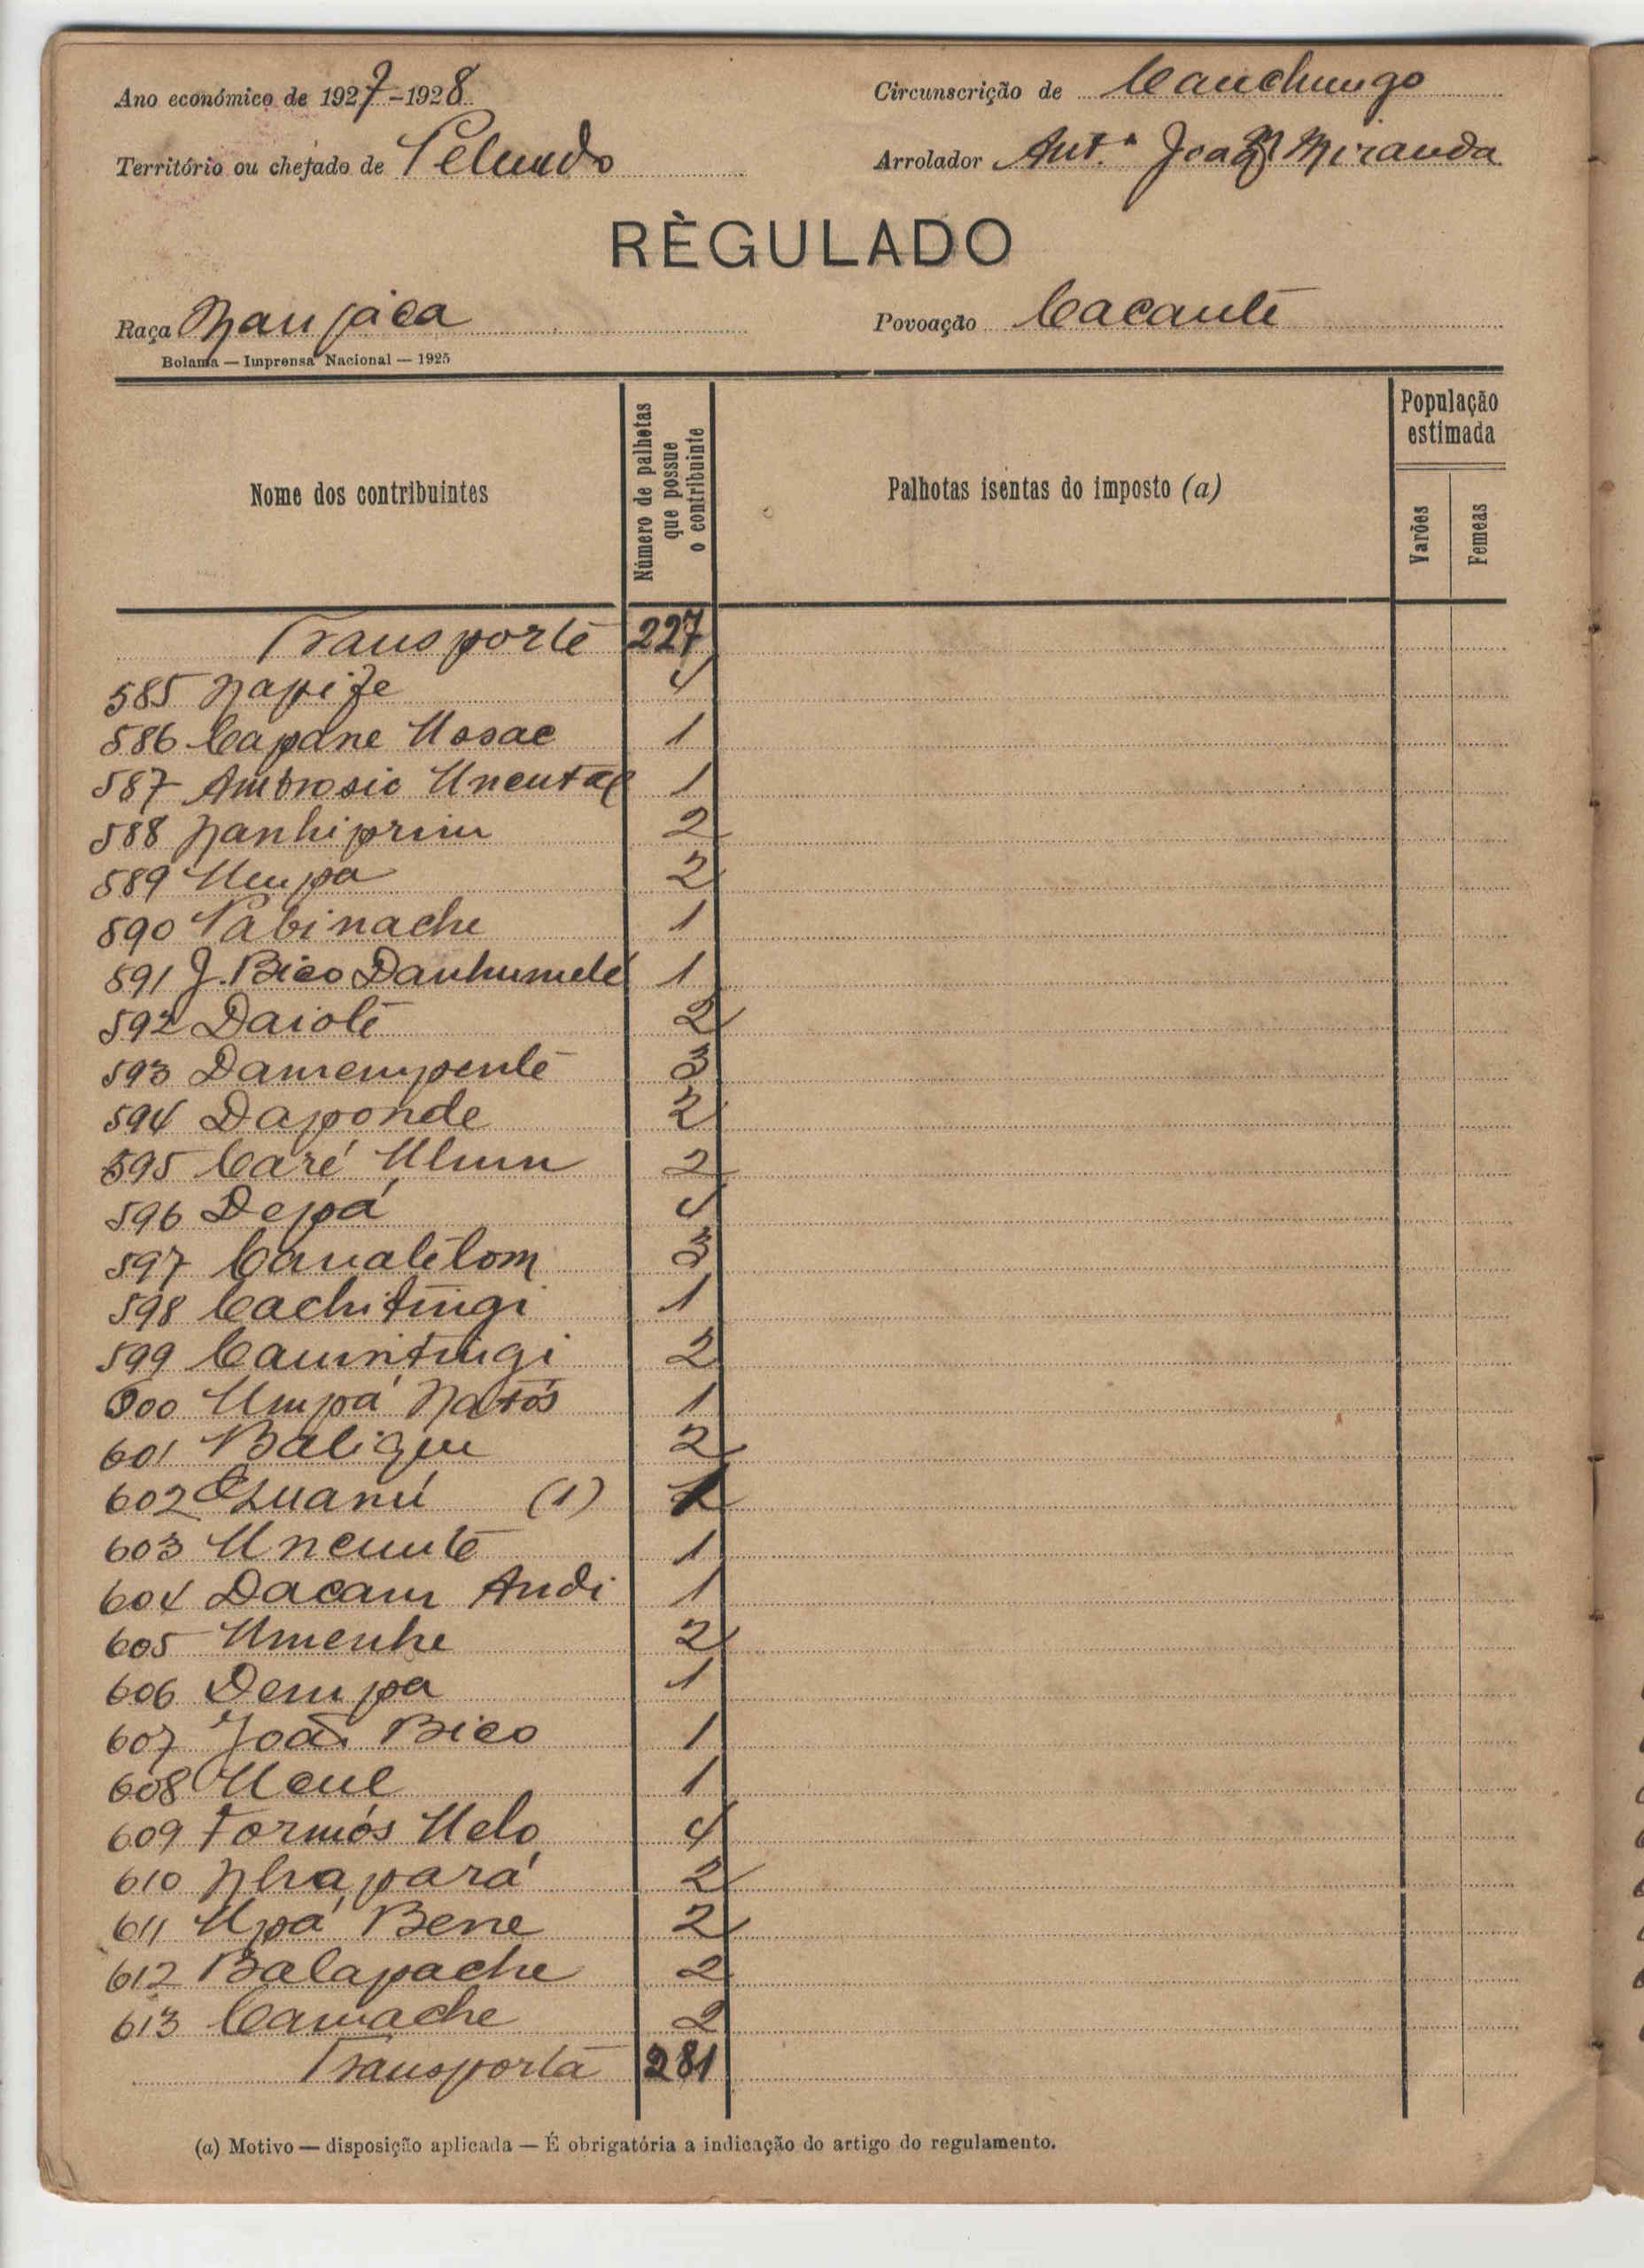 Ano económico de 1927-1928
Circunscrição de Canchungo
Território ou chefado de Pelundo
Arrolador Ant.º João Miranda
RÈGULADO
Raça Manjaca
Povoação Cacante
Bolama — Imprensa Nacional — 1925
Nome dos contribuintes
Número de palhotas que possue o contribuinte
Palhotas isentas do imposto (a)
População estimada
Varões
Femeas
Transporte 227
585 Napife 4
586 Capane Uosac 1
587 Ambrosio 1
588 Nanhiprim 2
589 Umpa 2
590 Pabinache 1
591 J. Bico Danhumelé 1
592 Daiote 2
593 Damempente 3
594 Daponde 2
595 Caré Ulum 2
596 Depá 4
597 Canatetom 3
598 Cachitingi 1
599 Camintingi 2
600 Umpá Natós 1
601 Baliqui 2
602 (1) 1
603 Uncunte 1
604 Dacam Andi 1
605 Umenhe 2
606 Dempa 1
607 João Bico 1
608 Ucul 1
609 Formós Uelo 4
610 Nhapará 2
611 Upá Bene 2
612 Balapache 2
613 Camache 2
Transporta 281
(a) Motivo — disposição aplicada — É obrigatória a indicação do artigo do regulamento.